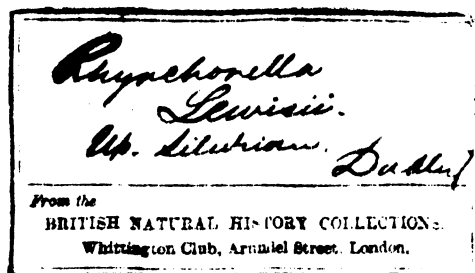 Rhynchonella
Lewisii.
Up. Silurian.
Dudley
From the
BRITISH NATURAL HISTORY COLLECTIONS.
Whittington Club, Arundel Street, London.